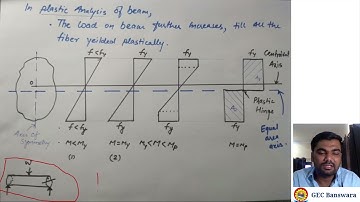 In plastic Analysis of beam,
• The load on beam further increases, till all the
fiber yeilded plastically.
f<fy
fy
fy
fy
Centroidal
Axis
A1
O
A2
Plastic
Hinge
Equal
area
axis.
Axis of
Symmetry
f<fy
fy
fy
fy
M<My
M=My
My<M<Mp
M=Mp
(1)
(2)
W
GEC Banswara